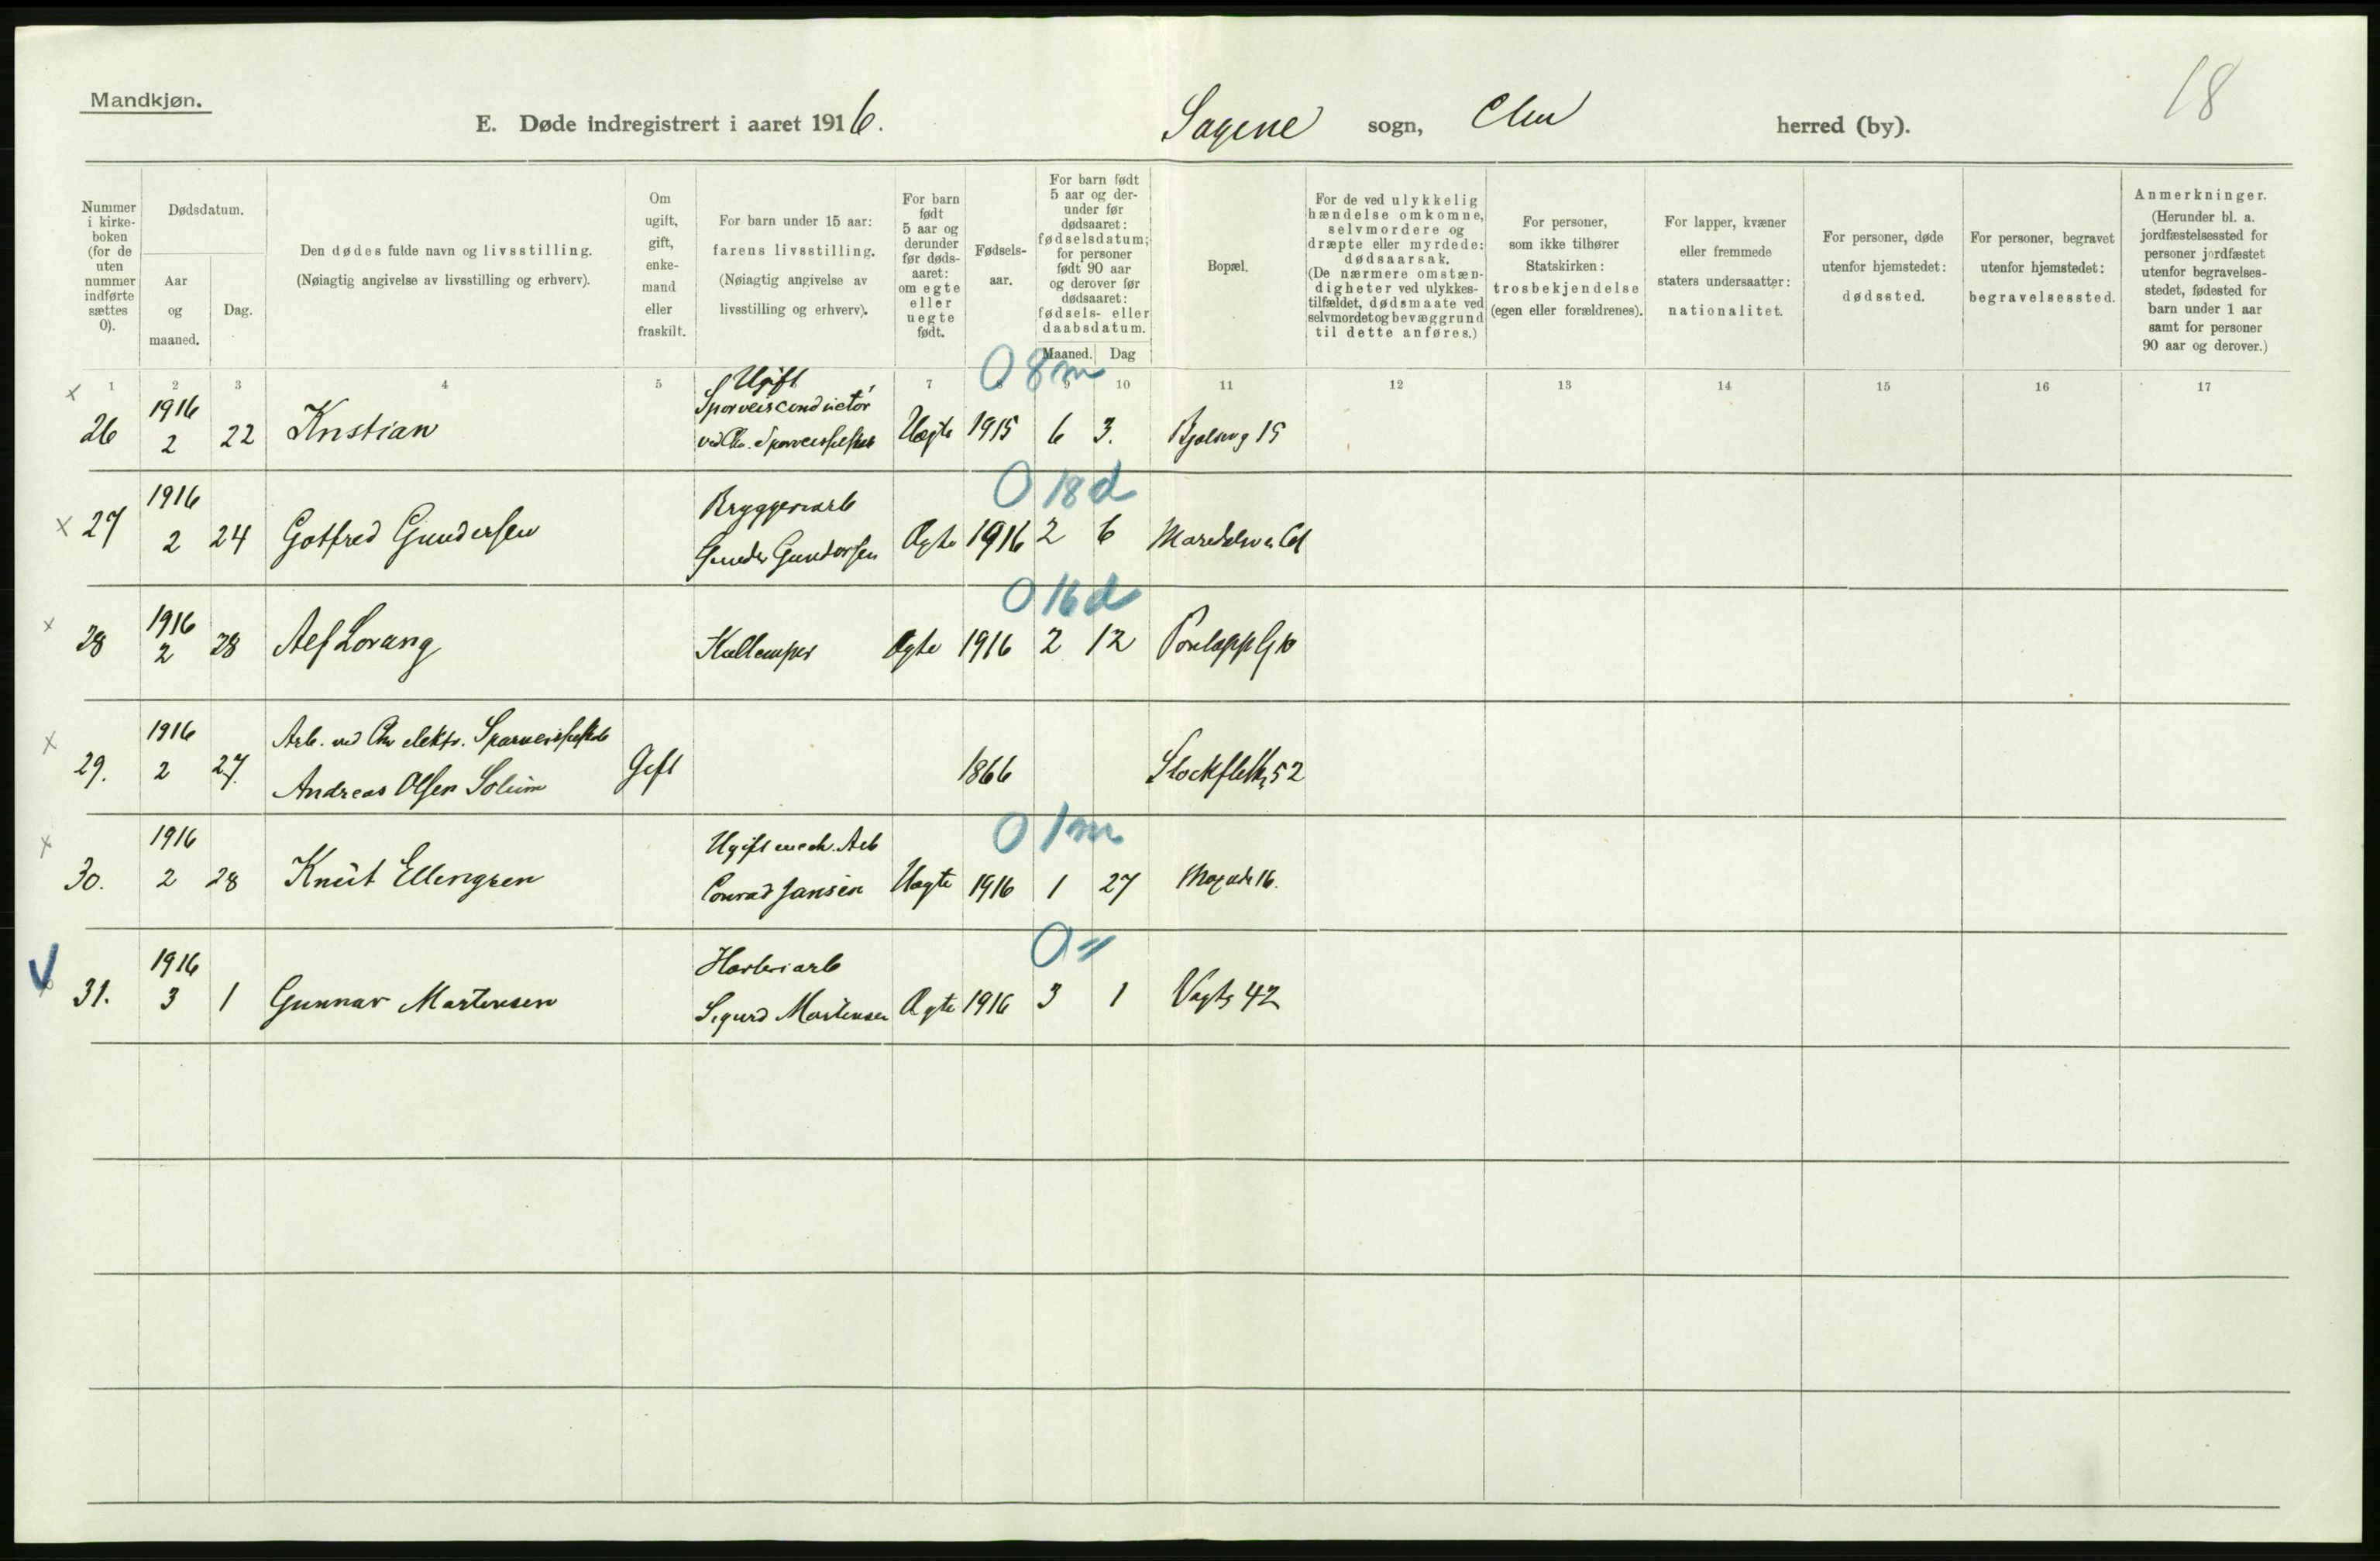 Mandkjøn.
18
E. Døde indregistrert i aaret 1916.
Sagene sogn, Chra herred (by).
Nummer i kirke-boken (for de uten nummer indførte sættes 0).
Dødsdatum.
Aar og maaned.
Dag.
Den dødes fulde navn og livsstilling.
(Nøiagtig angivelse av livsstilling og erhverv).
Om ugift, gift, enke-mand eller fraskilt.
For barn under 15 aar: farens livsstilling.
(Nøiagtig angivelse av livsstilling og erhverv).
For barn født 5 aar og derunder før døds-aaret: om egte eller uegte født.
Fødsels-aar.
For barn født 5 aar og der-under før dødsaaret: fødselsdatum; for personer født 90 aar og derover før dødsaaret: fødsels- eller daabsdatum.
Maaned. Dag
Bopæl.
For de ved ulykkelig hændelse omkomne, selvmordere og dræpte eller myrdede: dødsaarsak.
(De nærmere omstæn-digheter ved ulykkes-tilfældet, dødsmaate ved selvmordet og bevæggrund til dette anføres.)
For personer, som ikke tilhører Statskirken: trosbekjendelse (egen eller forældrenes).
For lapper, kvæner eller fremmede staters undersaatter: nationalitet.
For personer, døde utenfor hjemstedet: dødssted.
For personer, begravet utenfor hjemstedet: begravelsessted.
Anmerkninger.
(Herunder bl. a. jordfæstelsessted for personer jordfæstet utenfor begravelses-stedet, fødested for barn under 1 aar samt for personer 90 aar og derover.)
1 2 3 4 5 7 9 10 11 12 13 14 15 16 17
0 8 m
x 26 1916 2 22 Kristian Ugift Sporveisconductør ved Chr. Sporveisselskab Uegte 1915 6 3. Bjølseng 15
0 18 d
x 27 1916 2 24 Gotfred Gundersen Bryggeriarb Gunder Gundersen Ægte 1916 2 6
0 16 d
x 28 1916 2 28 Alf Lorang Ægte 1916 2 12
x 29. 1916 2 27. Arb. ved Chr elektr. Sporveisselskab
Andreas Olsen Solum Gift 1866 Stockflethg 52
0 1 m
x 30. 1916 2 28 Knut Ellingsen Ugift mech. Arb Conrad Jansen Uegte 1916 1 27
0 "
31. 1916 3 1 Gunnar Martensen Sigurd Martensen Ægte 1916 3 1 Vogtsg 42